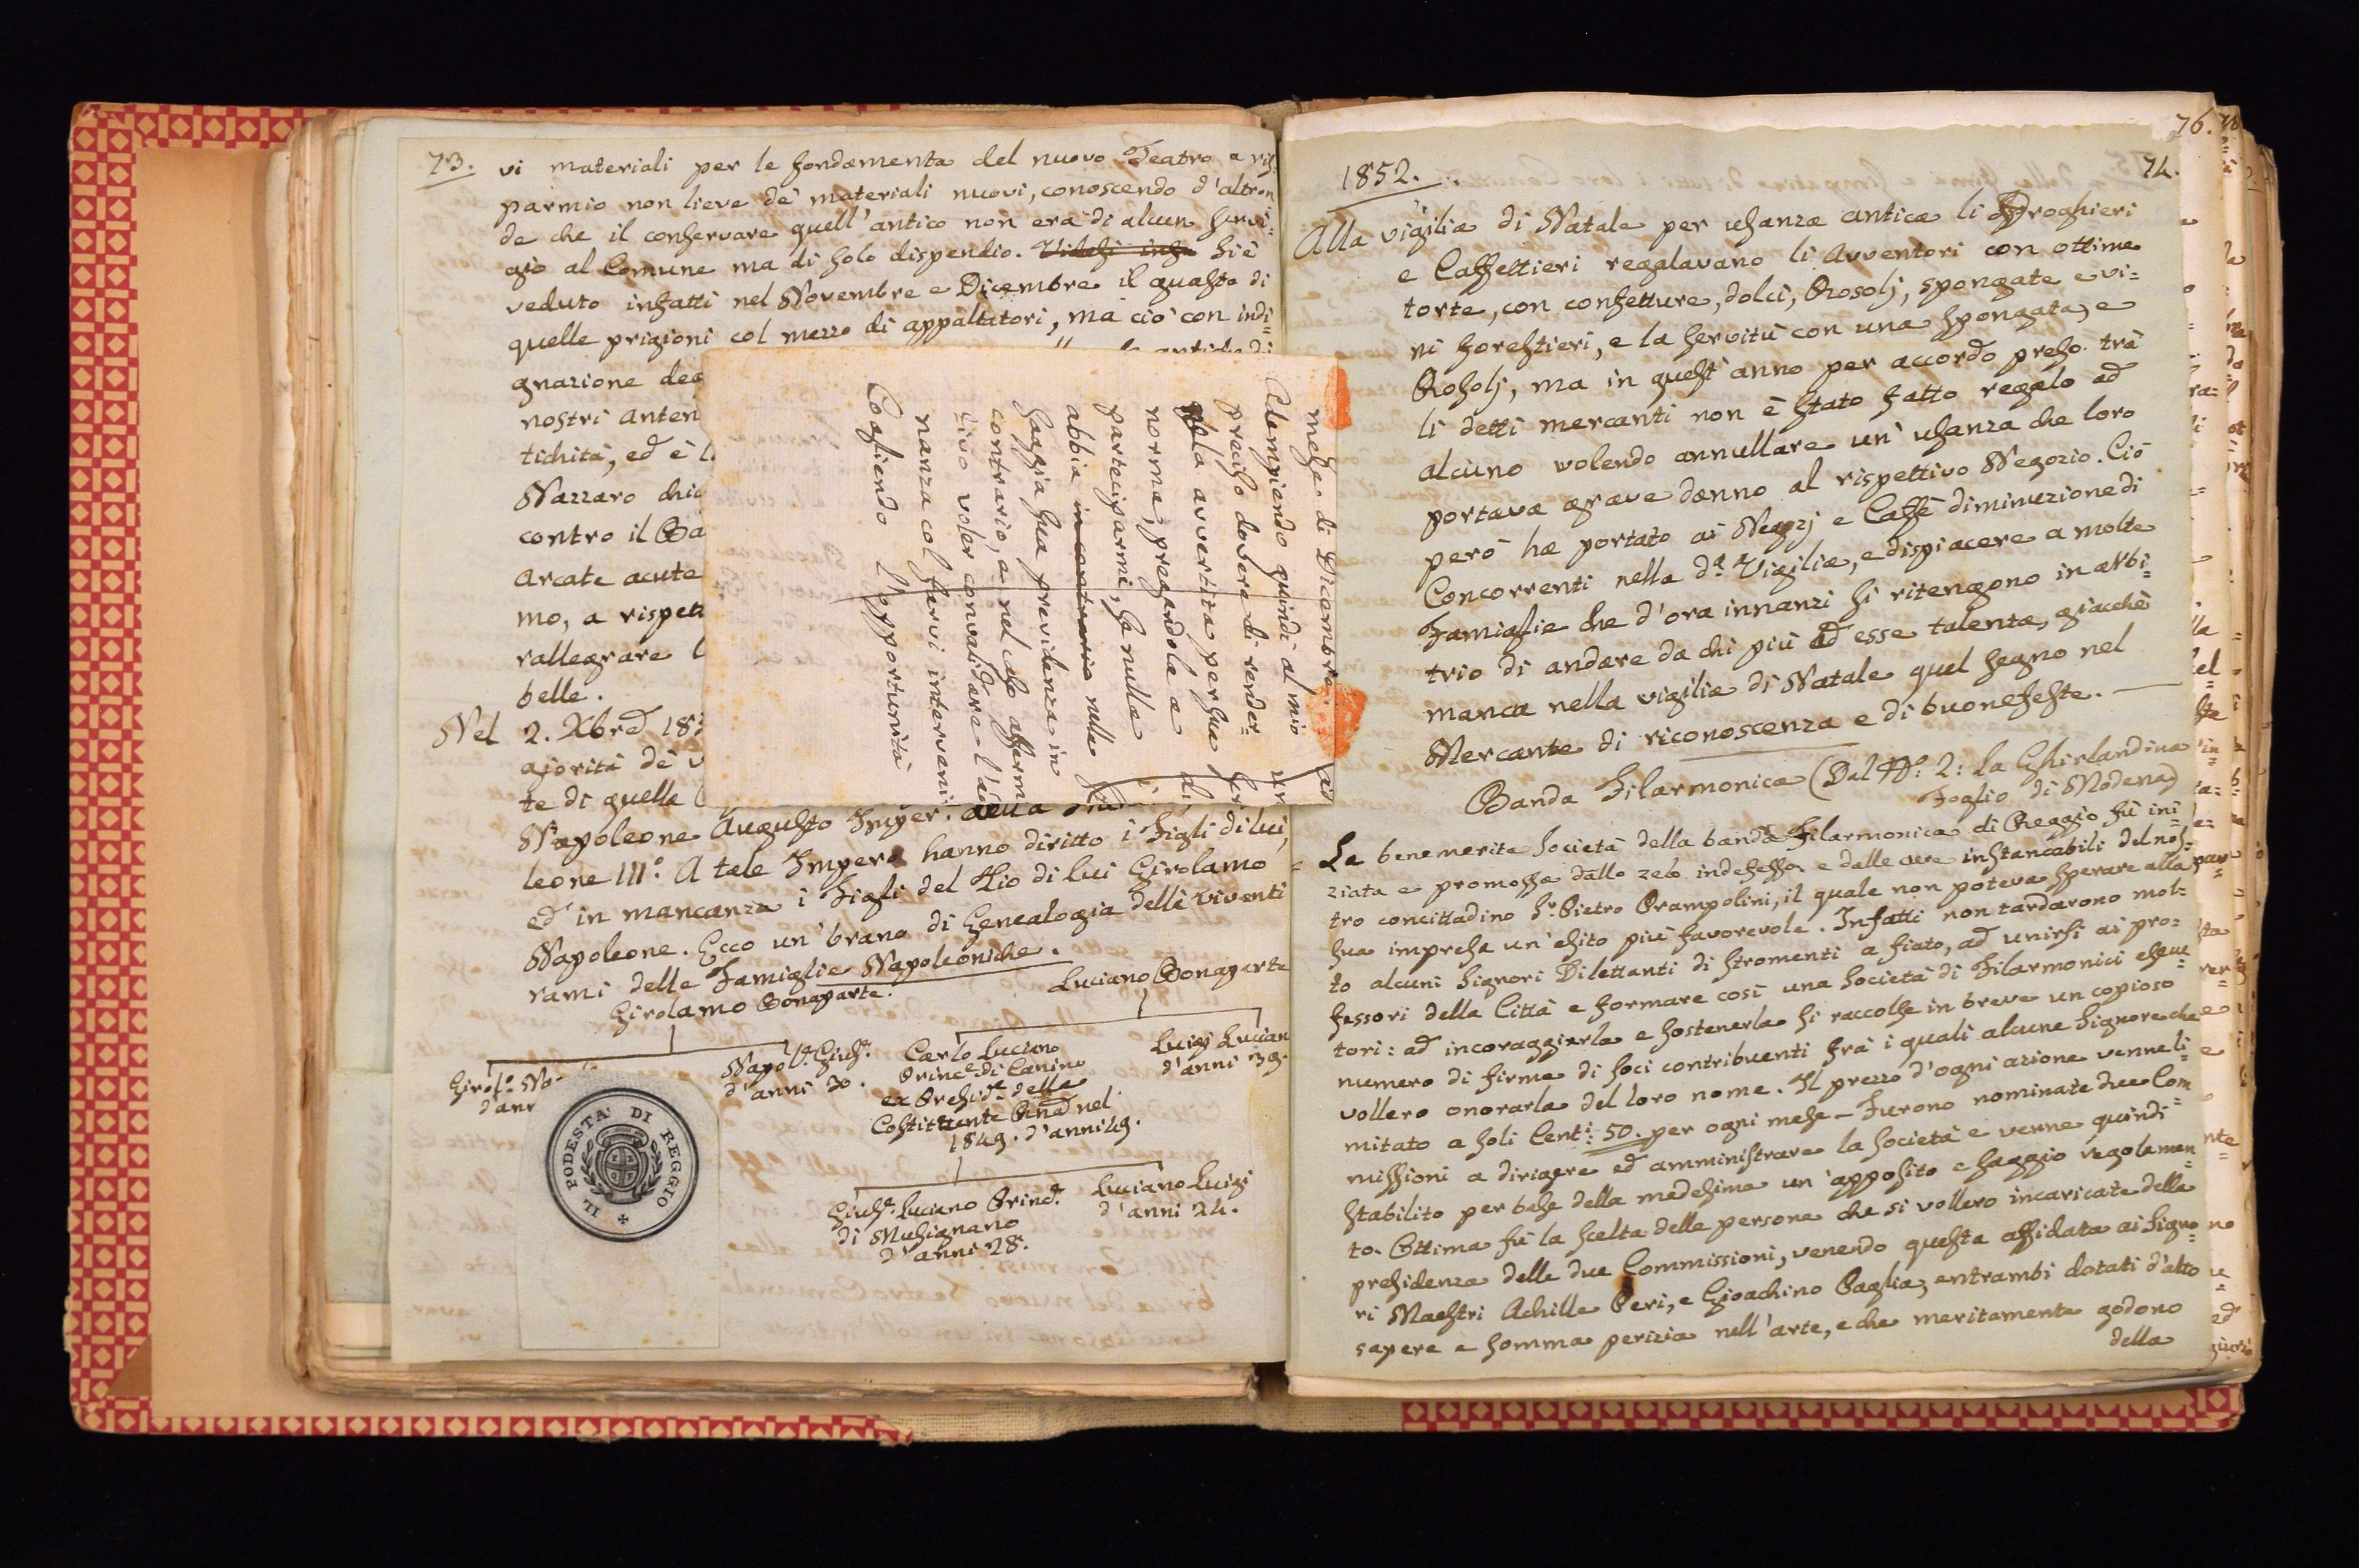 73.
vi materiali per le fondamenta del nuovo Teatro e ris=
parmio non lieve de' materiali nuovi, conoscendo d'altron
de che il conservare quell'antico non era di alcun servi=
gio al Comune ma di solo dispendio. si è
veduto infatti nel Novembre e Dicembre il guasto di
quelle prigioni col mezzo di appaltatori, ma ciò con indi=
gnazione
nostri
tichità, ed è
Nazzaro
contro il
arcate acute
mo, a
rallegrare
belle.
Nel 2. Xbre
ajorità de'
te di quella
Napoleone Augusto Imper.
leone III.° A tale Impero hanno diritto i Figli di lui,
ed in mancanza i Figli del Zio di lui Girolamo
Napoleone. Ecco un' brano di Genealogia delli viventi
rami delle Famiglie Napoleoniche.
Girolamo Bonaparte.
Luciano Bonaparte
Girol.°
Napol.e Gius.e
d'anni 30.
Carlo Luciano
Princ.e di Canino
ex Presid.e della
Costituente nel
1849. d'anni 49.
Luigi Lucian
d'anni 39.
Gius.e Luciano Princ.e
di Musignano
d'anni 28.
Luciano Luigi
d'anni 24.
IL PODESTA' DI REGGIO
mese di Dicembre
Adempiendo quindi al mio
preciso dovere di render=
la avvertita per sua
norma, pregandola a
parteciparmi, se nulla
abbia in contrario nella
saggia sua previdenza in
contrario, e nel caso afferm
tivo voler convalidare l'
nanza col servi interveni=
Cogliendo l'opportunità
1852.
76.
74.
Alla vigilia di Natale per usanza antica li Droghieri
e Caffettieri regalavano li Avventori con ottime
torte, con confetture, dolci, Rosolj, spongate e vi=
ni forestieri, e la servitù con una spongata, e
Rosolj, ma in quest'anno per accordo preso trà
li detti mercanti non è stato fatto regalo ad
alcuno volendo annullare un' usanza che loro
portava grave danno al rispettivo Negozio. Ciò
però ha portato ai Negozj e Caffè diminuzione di
Concorrenti nella d.a Vigilia, e dispiacere a molte
Famiglie che d'ora innanzi si ritengono in arbi=
trio di andare da chi più ad esse talenta, giacchè
manca nella vigilia di Natale quel segno nel
Mercante di riconoscenza e di buonefeste.
Banda Filarmonica (Dal N.° 2: La Ghirlandina
Foglio di Modena)
La benemerita Società della banda Filarmonica di Reggio fù ini=
ziata e promossa dallo zelo indefesso e dalle cure instancabili del nos=
tro concittadino S.r Pietro Prampolini, il quale non poteva sperare alla
sua impresa un' esito più favorevole. Infatti non tardarono mol=
to alcuni Signori Dilettanti di stromenti a fiato, ad unirsi ai pro=
fessori della Città e formare così una Società di Filarmonici esecu
tori: ad incoraggiarla e sostenerla si raccolse in breve un copioso
numero di firme di soci contribuenti frà i quali alcune Signore che
vollero onorarla del loro nome. Il prezzo d'ogni azione venne li=
mitato a soli Cent.i 50. per ogni mese - Furono nominate due Com=
missioni a dirigere ed amministrare la Società e venne quindi
stabilito per base della medesima un' apposito e saggio regolamen=
to. Ottima fù la scelta delle persone che si vollero incaricate della
presidenza delle due Commissioni, venendo questa affidata ai Signo=
ri Maestri Achille Peri, e Gioachino Paglia, entrambi dotati d'alto
sapere e somma perizia nell'arte, e che meritamente godono
della